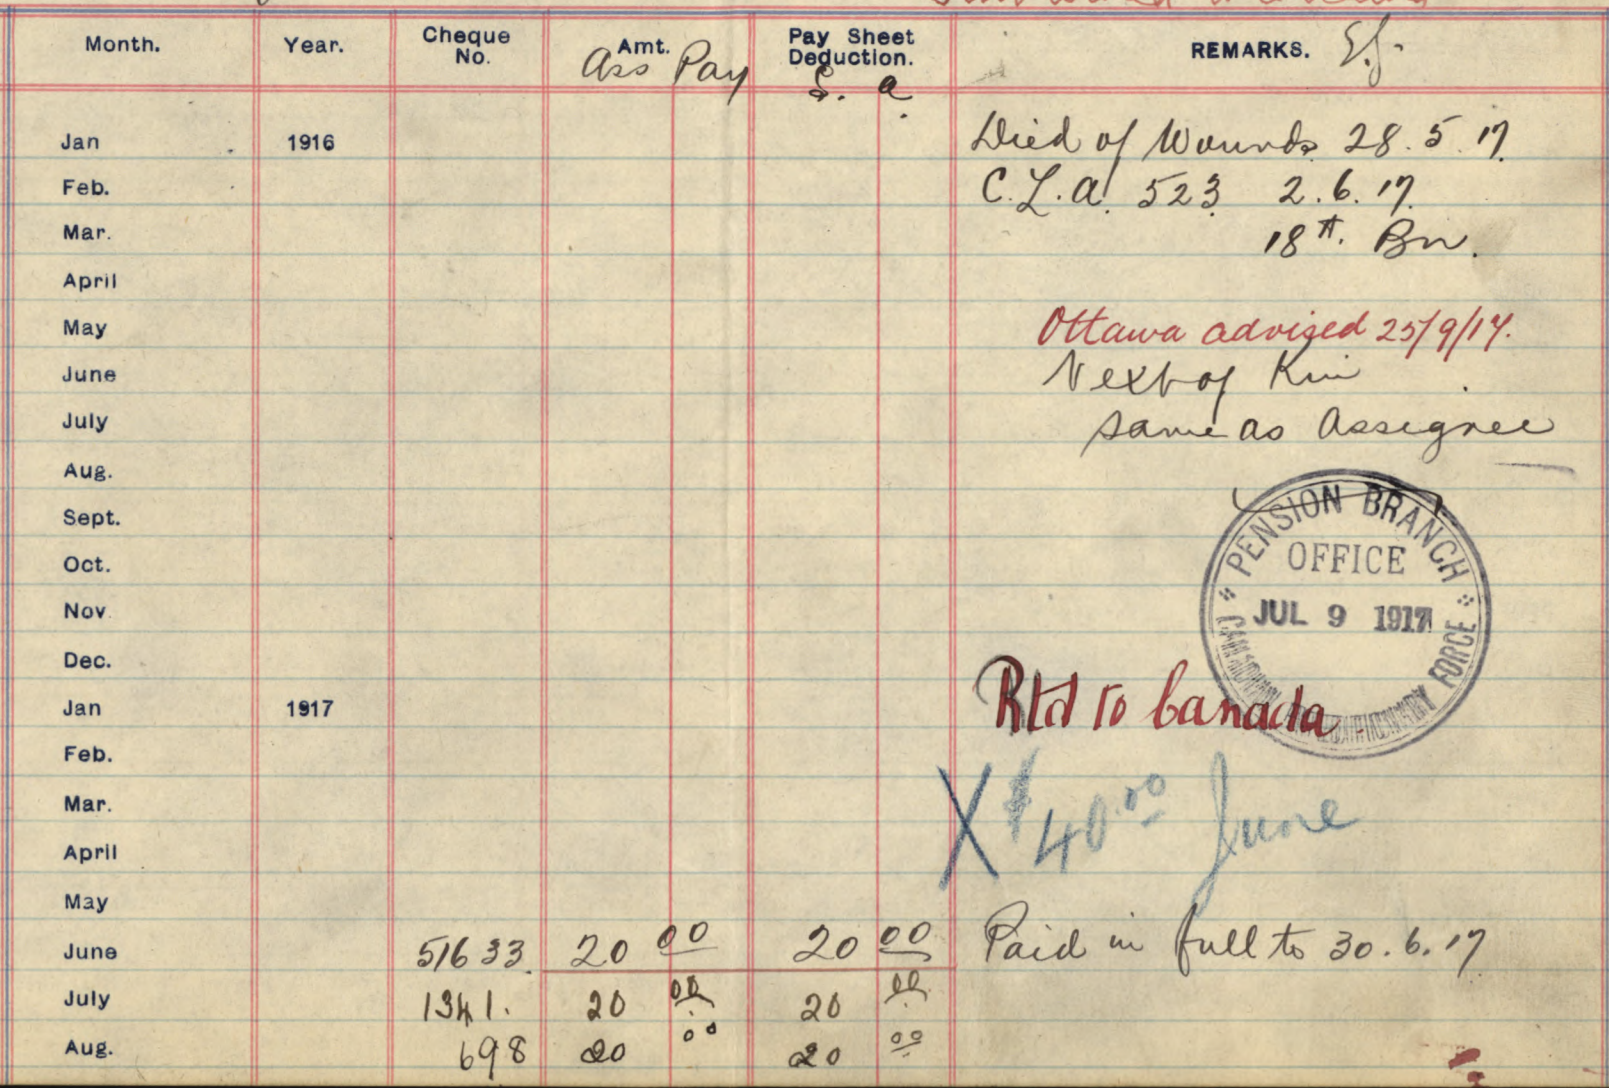 Month. Year. Cheque No. Amt. Pay Sheet Deduction. REMARKS.
Ass Pay S. a.
Jan 1916 Died of Wounds 28.5.17
Feb. C.L.a. 523 2.6.17.
Mar. 18th. Bn.
April
May Ottawa advised 25/9/17.
June Next of Kin
July same as Assignee
Aug.
Sept. PENSION BRANCH
Oct. OFFICE
Nov. JUL 9 1917
Dec. CANADIAN EXPEDITIONARY FORCE
Jan 1917 Rtd to Canada
Feb.
Mar. X $40.00 June
April
May
June 51633 20 00 20 00 Paid in full to 30.6.17
July 1341. 20 00 20 00
Aug. 698 20 00 20 00